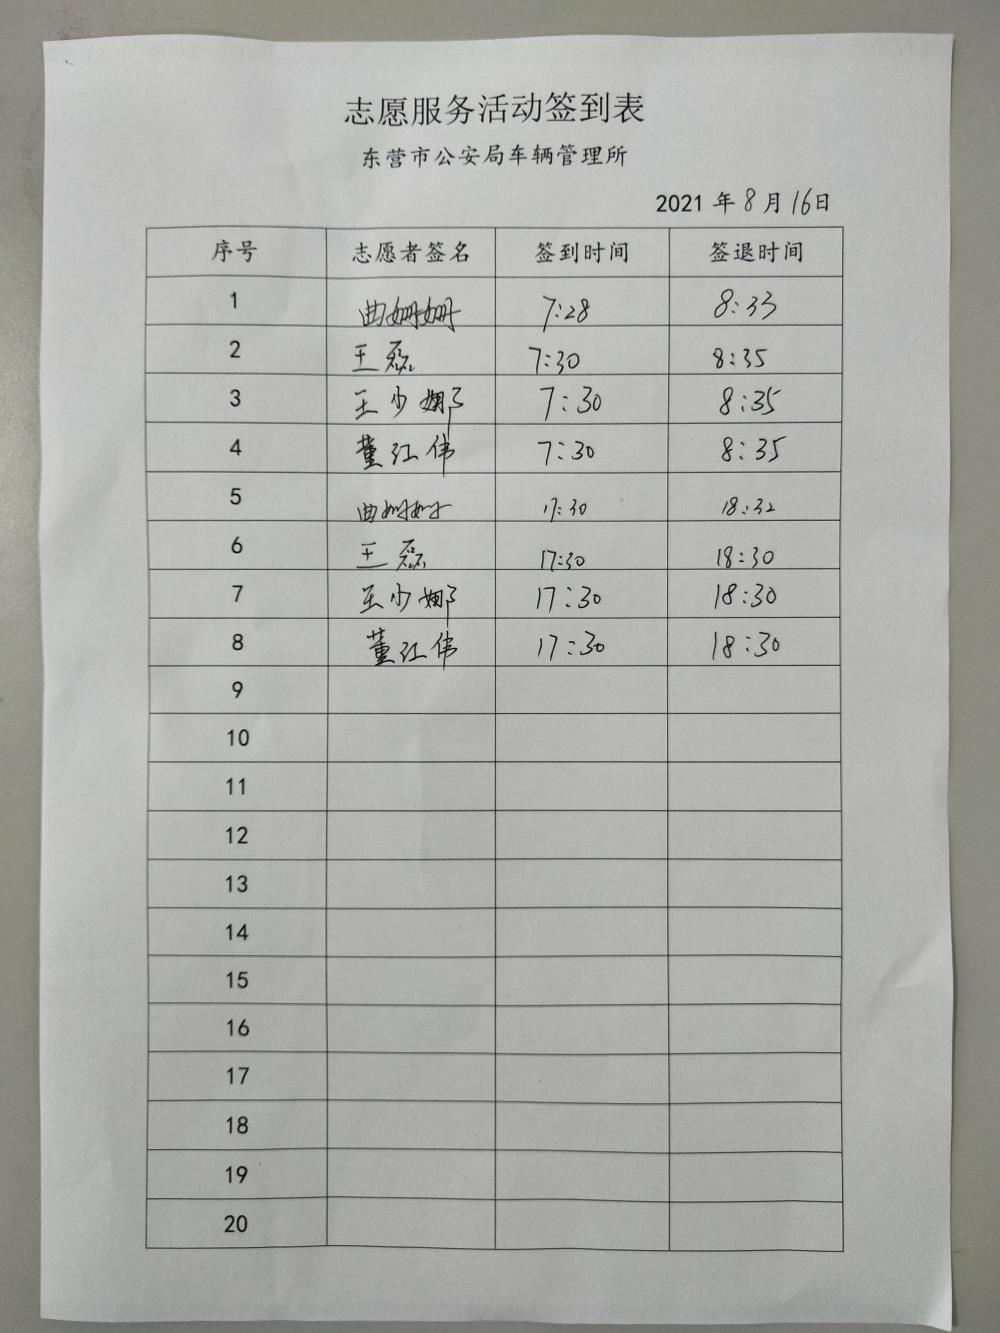 志愿服务活动签到表
东营市公安局车辆管理所
2021 年 8 月 16日
序号 志愿者签名 签到时间 签退时间
1 曲姗姗 7:28 8:33
2 王磊 7:30 8:35
3 王少娜 7:30 8:35
4 董江伟 7:30 8:35
5 曲姗姗 17:30 18:32
6 王磊 17:30 18:30
7 王少娜 17:30 18:30
8 董江伟 17:30 18:30
9
10
11
12
13
14
15
16
17
18
19
20